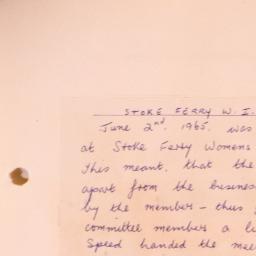 STOKE FERRY W. I.
June 2nd. 1965. was
at Stoke Ferry Womens
This meant, that the
apart from the business
by the member - thus
committee members a
Speed handed the